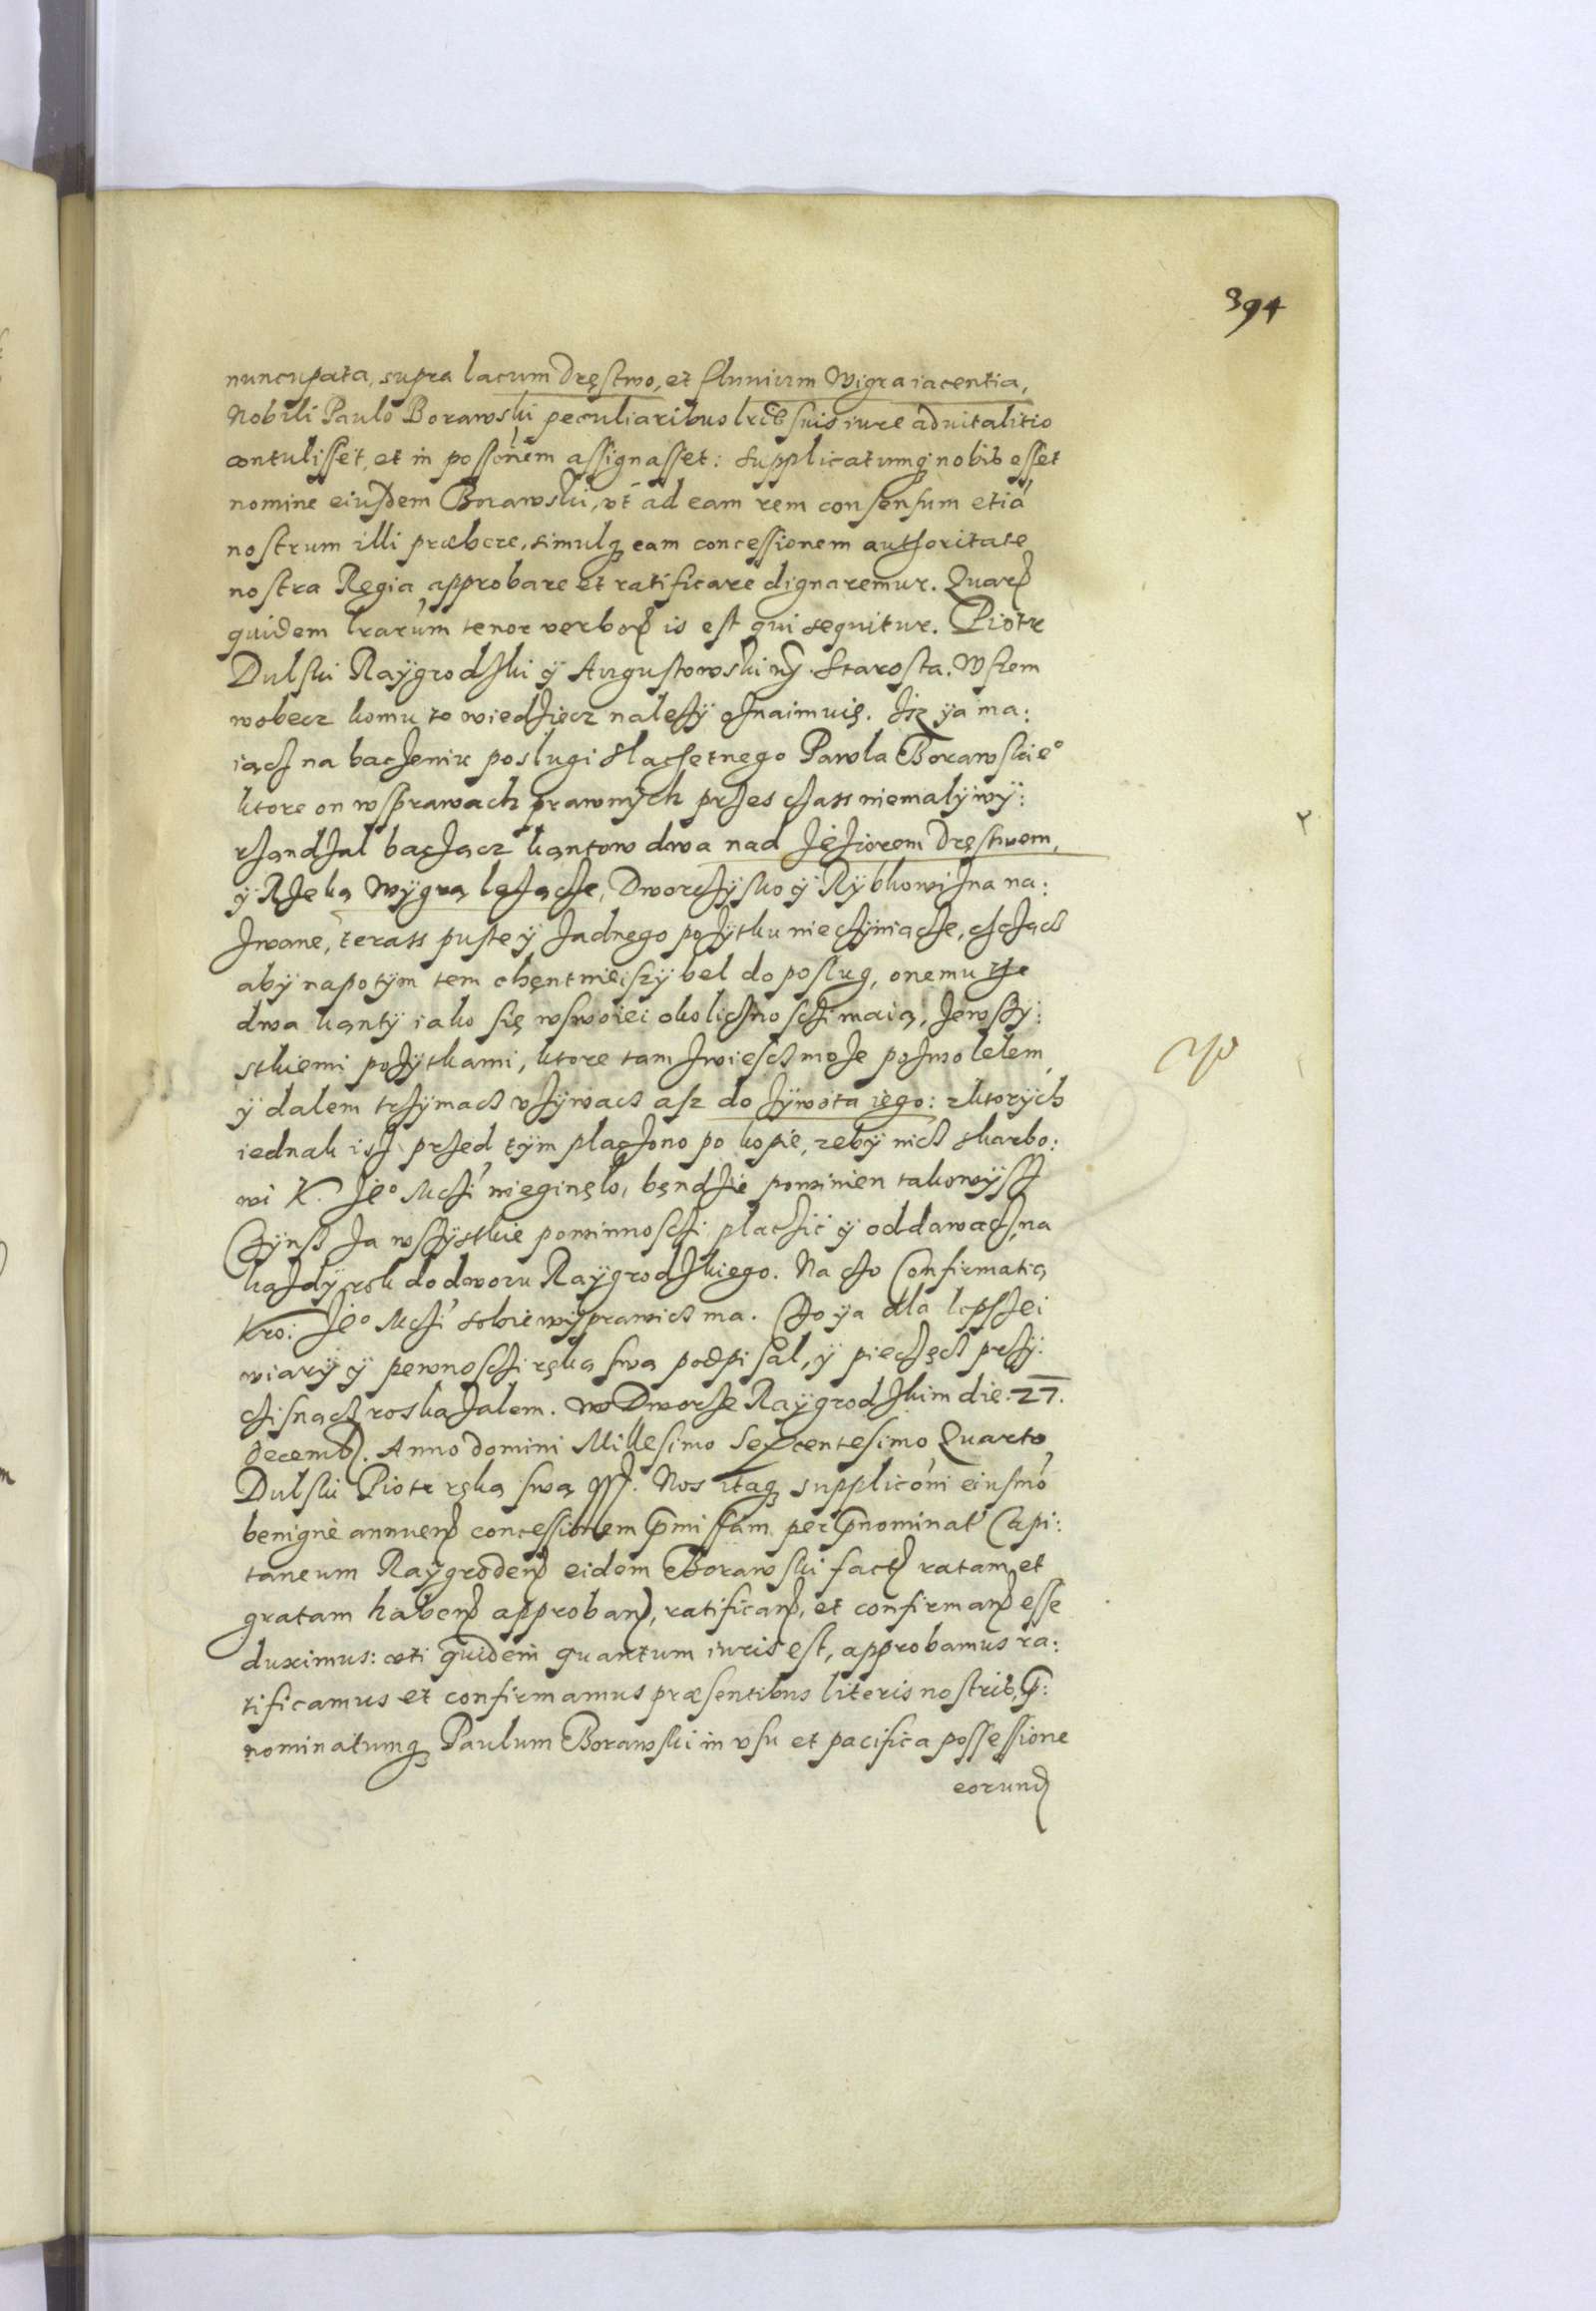 394
nuncupata, supra lacum Dręstwo, et fluuium Wigra iacentia,
Nobili Paulo Borawski peculiaribus lrib suis iure aduitalitio
contulisset, et in possonem assignasset: Supplicatumq nobis esset
nomine eiusdem Borawski, vt ad eam rem consensum etiã
nostrum illi præbere, simulq eam concessionem authoritate
nostra Regia approbare et ratificare dignaremur. Quarũ
quidem lrarum tenor verborũ is est qui sequitur. Piotr
Dulski Raÿgrodzki ÿ Augustowski Starosta. Wszem
wobecz komu to wiedziecz należÿ oznaimuię. Jsz ÿa ma:
iącz na baczeniu poslugi slachetnego Pawla Borawskie°
ktore on w sprawach prawnÿch przes czass niemalÿ wÿ:
rzandzal baczącz kątow dwa nad Jeziorem Dręstwem,
ÿ Rzeką Wÿgrą lezącze, Dworczÿsko ÿ Rÿbkowizna na:
zwane, terass puste ÿ zadnego pożÿtku nieczÿniącze, chcząch
abÿ napotÿm tem chęntnieiszÿ bel do poslug, onemu the
dwa kąntÿ iako się w swoiei okolicznosczi maią, zewszÿ:
stkiemi pozÿtkami, ktore tam zwiesch moze pozwolelem,
ÿ dalem trzÿmach vżÿwach asz do żÿwota iego: z ktorÿch
iednak isz przed tÿm placzono po kopie, zebÿ nich skarbo:
wi K. Je° Mczi niegineło, bęndzie powinien takowÿsz
Czÿnsz za wszÿstkie powinnosczi placzić ÿ oddawach, na
każdÿ rok do dworu Raÿgrodzkiego. Na czo Confirmatią
Kro: Je° Mczi sobie wÿprawich ma. Czo ÿa dla lepszei
wiarÿ ÿ pewnosczi ręką swą podpisal, ÿ pieczęch przÿ:
czisnach roskazalem. w Dworze Raÿgrodzkim die. 27.
Decemb. Anno domini Millesimo Sexcentesimo Quarto
Dulski Piotr ręką swą. Nos itaq supplicõni eiusmõ
benignè annuenẽ concessionem pmissam per pnominat Capi:
taneum Raÿgrodenẽ eidem Borawski factã ratam et
gratam habenẽ approbanẽ, ratificanẽ, et confirmanẽ esse
duximus: vti quidem quantum iuris est, approbamus ra:
tificamus et confirmamus præsentibus literis nostris, p:
nominatumq Paulum Borawski in vsu et pacifica possessione
eorunẽ